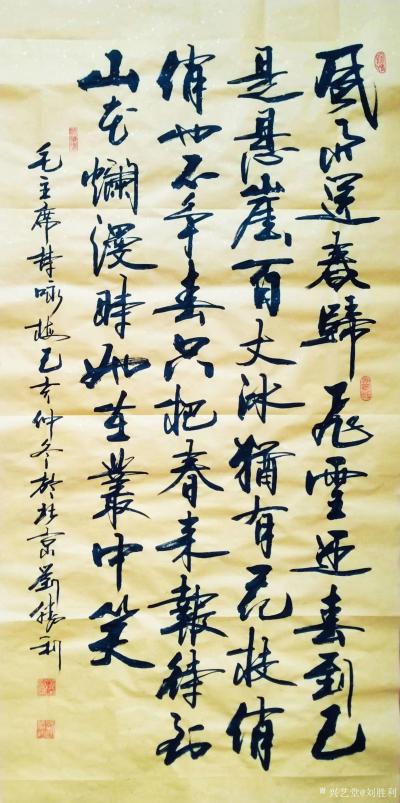 風雨送春歸飛雪迎春到已
是懸崖百丈冰猶有花枝俏
俏也不争春只把春来報待到
山花爛漫時她在叢中笑
毛主席咏梅己亥仲冬於北京劉勝利
兴艺堂@刘胜利